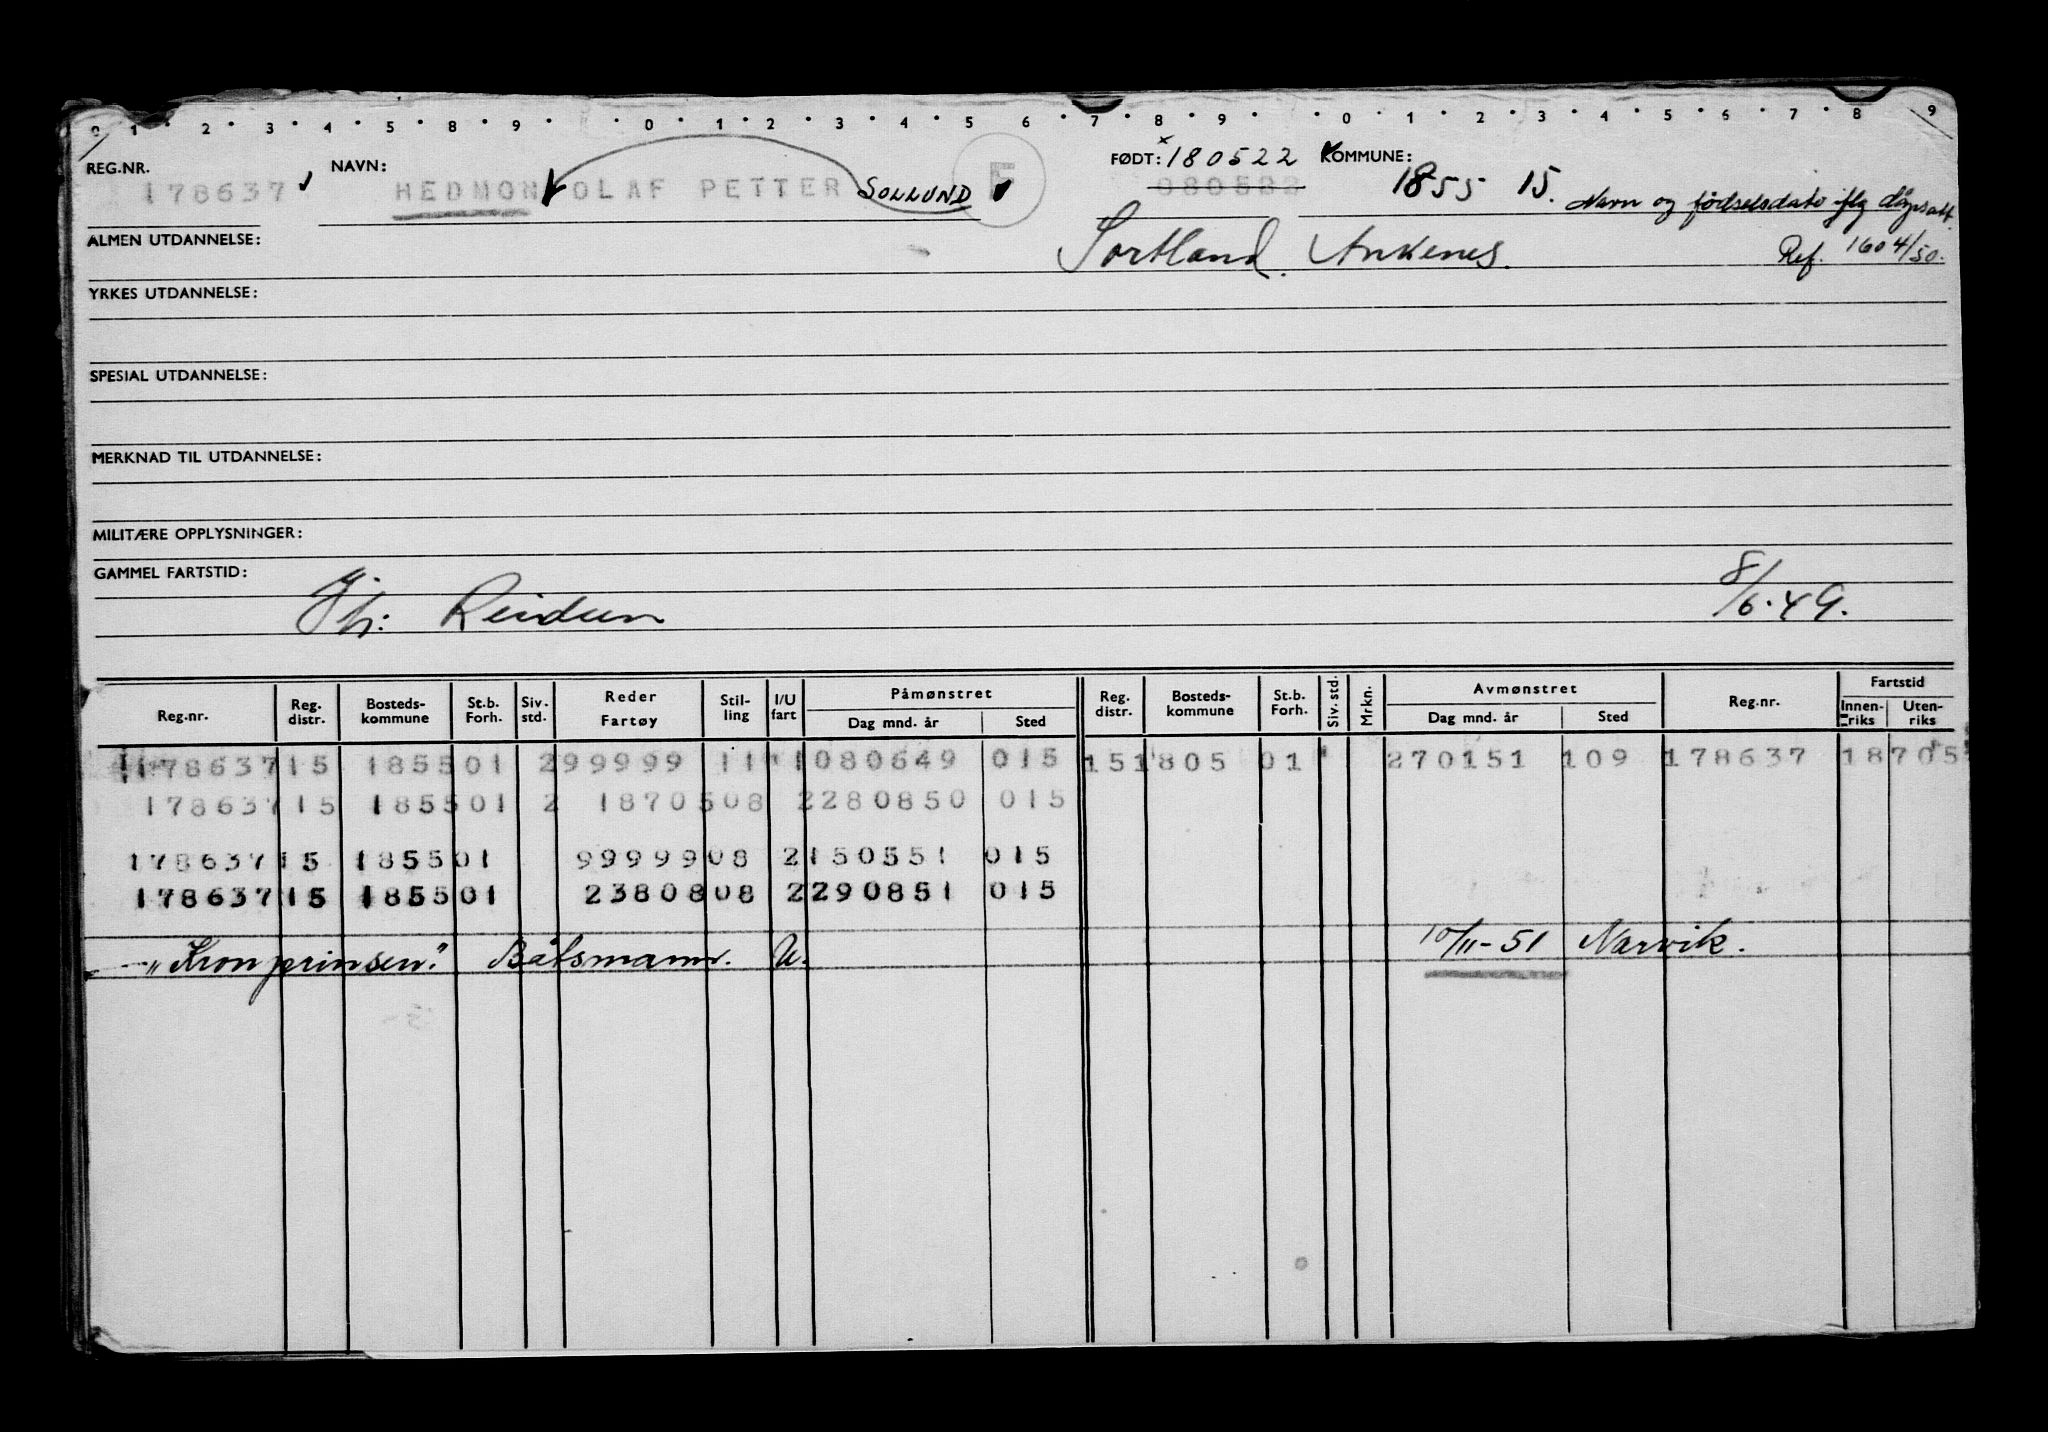 0 1 2 3 4 5 8 9 0 1 2 3 4 5 6 7 8 9 0 1 2 3 4 5 6 7 8 9
REG.NR. NAVN: FØDT: 180522 KOMMUNE:
178637 HEDMON OLAF PETTER SOLLUND F 080522 1855 15. Navn og fødselsdato iflg dåpsatt.
ALMEN UTDANNELSE: Sortland. Ankenes. Ref. 1604/50.
YRKES UTDANNELSE:
SPESIAL UTDANNELSE:
MERKNAD TIL UTDANNELSE:
MILITÆRE OPPLYSNINGER:
GAMMEL FARTSTID:
Reidun 8/6.49.
Reg.nr. Reg. distr. Bosteds-kommune St.b. Forh. Siv. std. Reder Fartøy Stil-ling I/U fart Påmønstret Dag mnd. år Sted Reg. distr. Bosteds-kommune St.b. Forh. Siv. std. Mrkn. Avmønstret Dag mnd. år Sted Reg.nr. Fartstid Innen-riks Uten-riks
178637 15 1855 01 2 99999 11 1 080649 015 15 1805 01 270151 109 178637 18705
178637 15 1855 01 2 18705 08 2 280850 015
178637 15 1855 01 99999 08 2 150551 015
178637 15 1855 01 23808 08 2 290851 015
"Kronprinsen". Båtsmann. U. 10/11-51 Narvik.